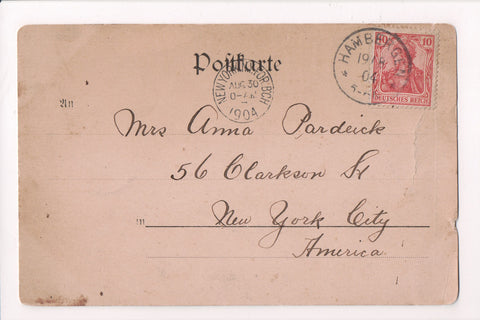 Postkarte
HAMBURG
19/8
04
10 10
DEUTSCHES REICH
NEW YORK
AUG 30
1904
An
Mrs Anna Pardeick
56 Clarkson St
in New York City
America